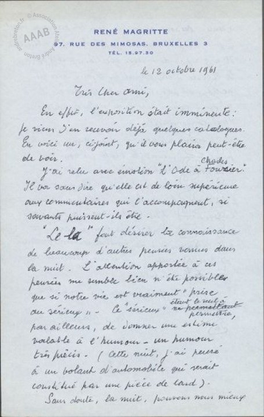 AAAB
RENÉ MAGRITTE
97, RUE DES MIMOSAS, BRUXELLES 3
TÉL. 15.97.30
le 12 octobre 1961
Très Cher ami,
En effet, l'exposition était imminente :
je viens d'en recevoir déjà quelques catalogues.
En voici un, ci-joint, qu'il vous plaira peut-être
de voir.
J'ai relu avec émotion "l'Ode à Charles Fourier"
Il va sans dire qu'elle est de loin supérieure
aux commentaires qui l'accompagnent, si
savants puissent-ils être.
"Le la" fait désirer la connaissance
de beaucoup d'autres pensées venues dans
la nuit. L'attention apportée à ces
pensées me semble bien n'être possible
que si notre vie est vraiment "prise
au sérieux" – le "sérieux"
permettre,
par ailleurs, de donner une estime
valable à l'humour – un humour
très précis. (Cette nuit, j'ai pensé
à un volant d'automobile qui serait
constitué par une pièce de lard).
Sans doute, la nuit, pouvons nous mieux